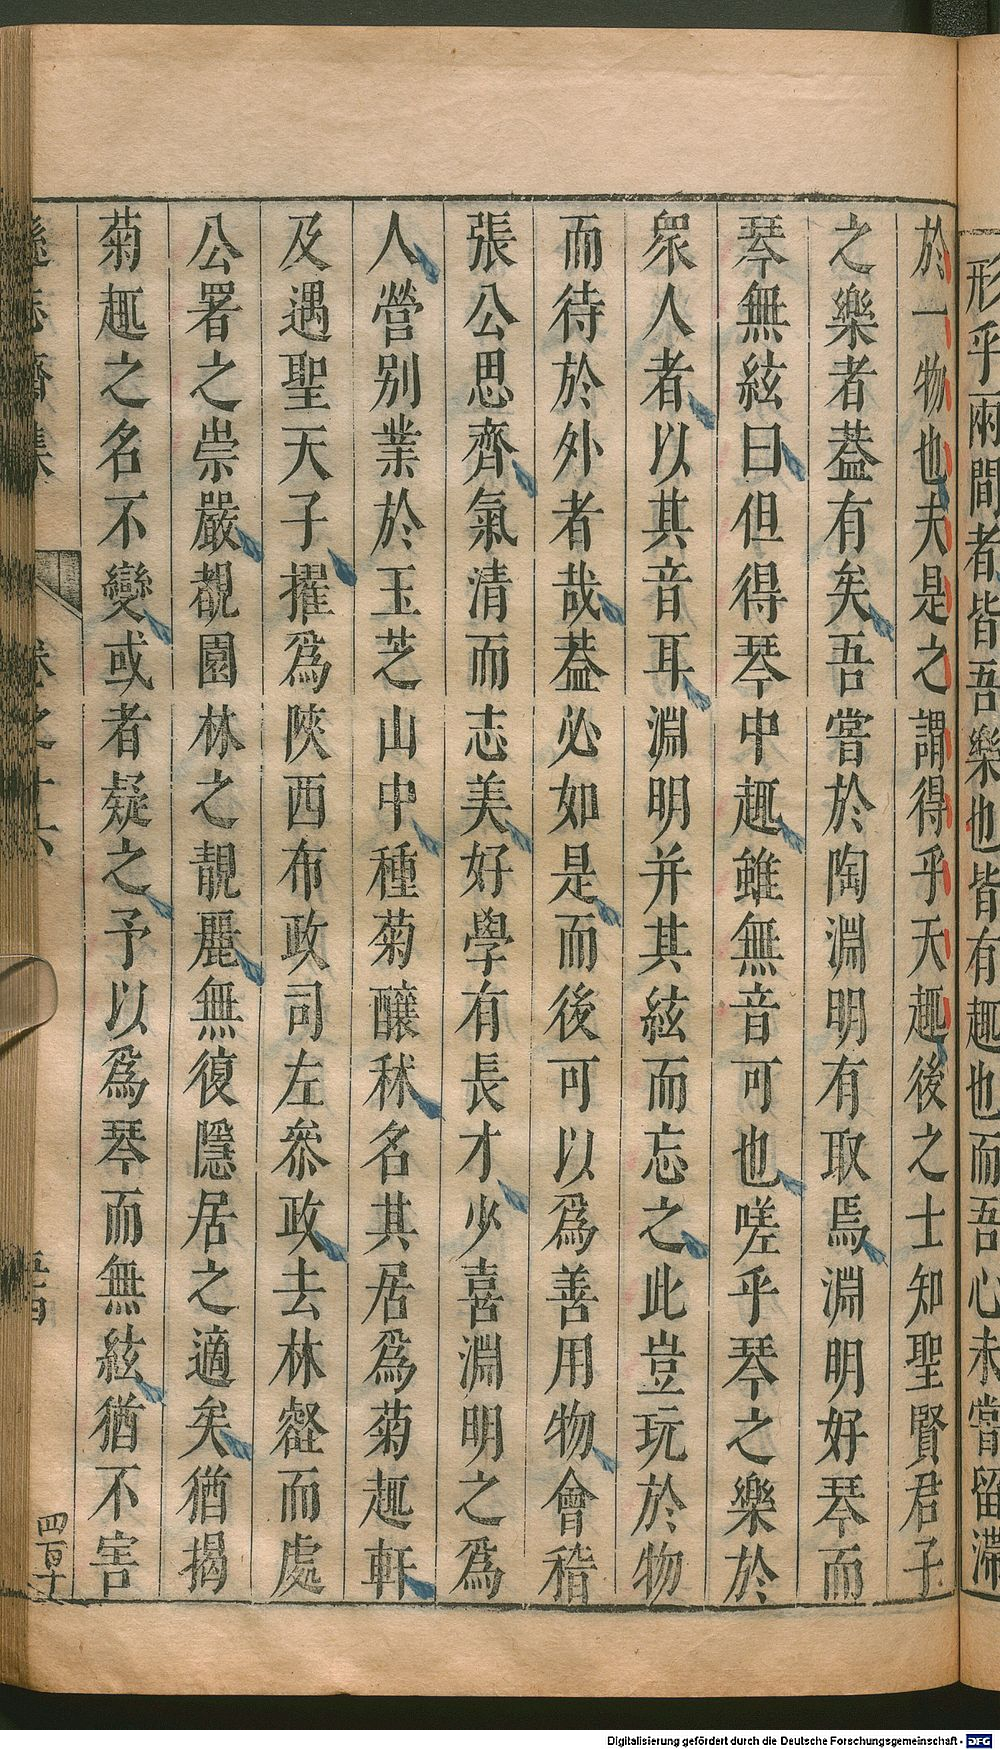 形乎兩間者皆吾樂也皆有趣也而吾心未嘗留滯
於一物也夫是之謂得乎天趣後之士知聖賢君子
之樂者葢有矣吾嘗於陶淵明有取焉淵明好琴而
琴無絃曰但得琴中趣雖無音可也嗟乎琴之樂於
衆人者以其音耳淵明并其絃而忘之此豈玩於物
而待於外者哉葢必如是而後可以爲善用物會稽
張公思齊氣清而志美好學有長才少喜淵明之爲
人營别業於玉芝山中種菊釀秫名其居爲菊趣軒
及遇聖天子擢爲陝西布政司左叅政去林壑而處
公署之崇嚴覩園林之靚麗無復隱居之適矣猶揭
菊趣之名不變或者疑之予以爲琴而無絃猶不害
遜志齋集 卷之十六
Digitalisierung gefördert durch die Deutsche Forschungsgemeinschaft - DFG